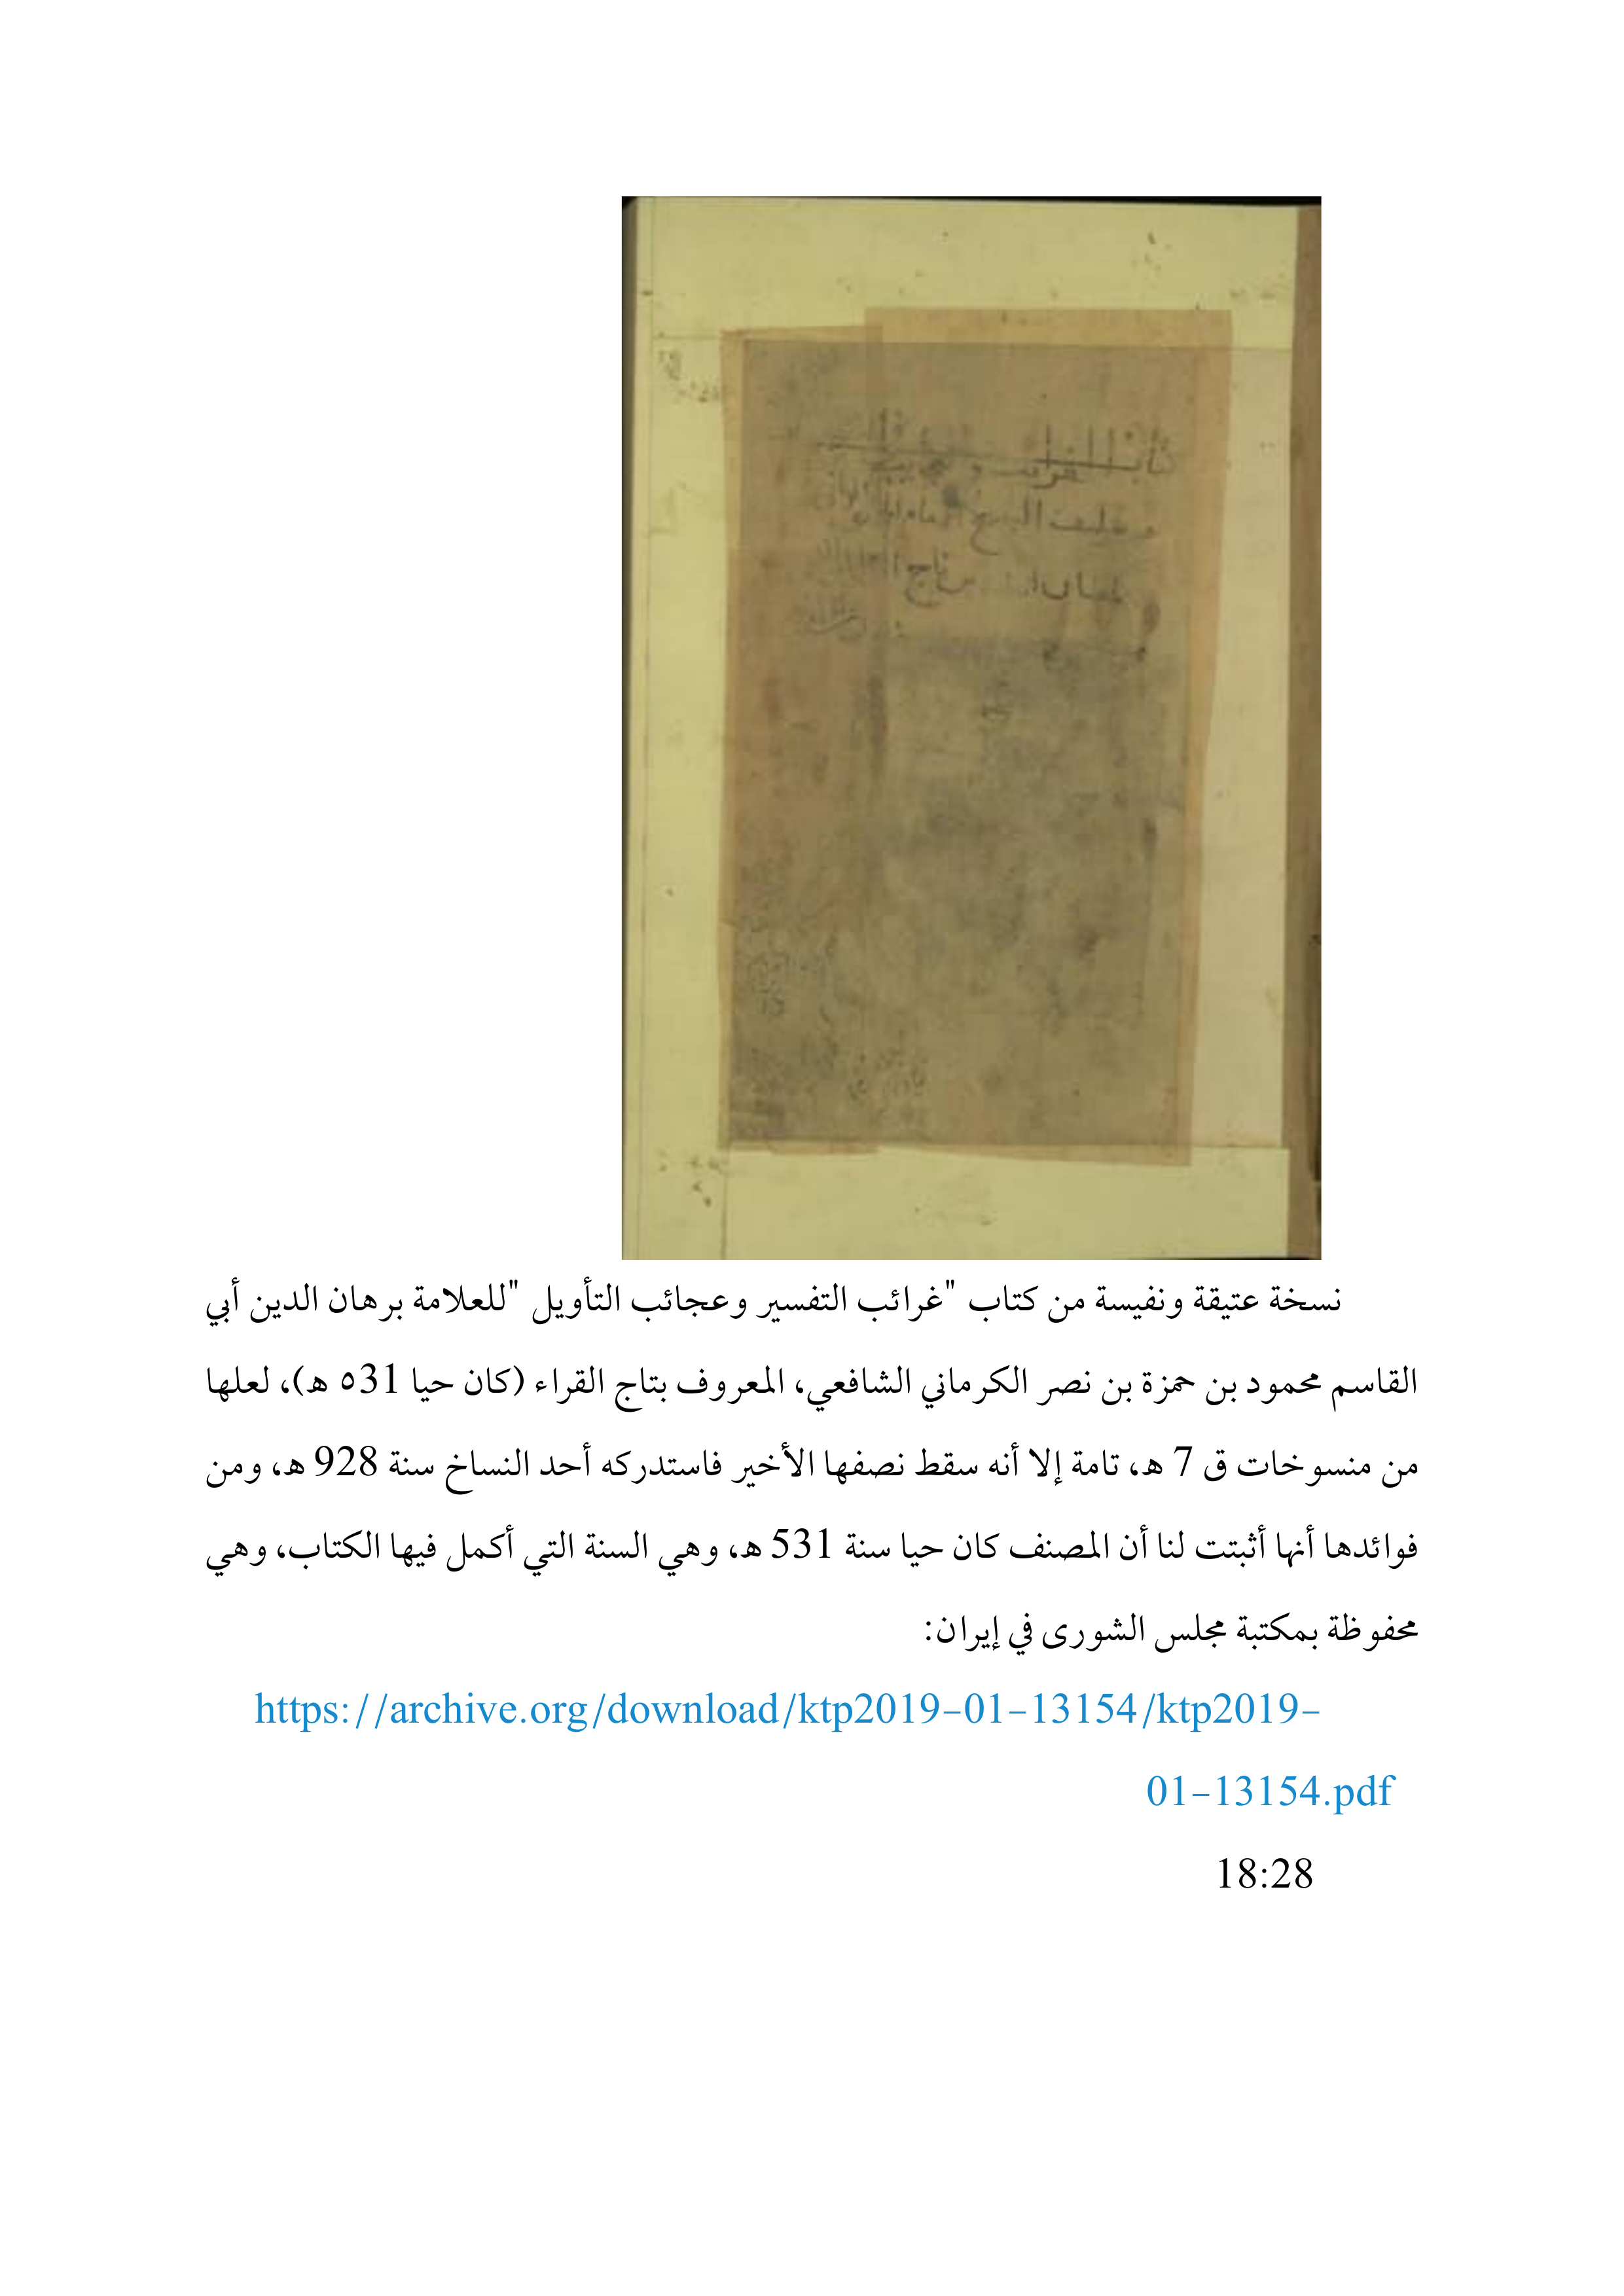 نسخة عتيقة ونفيسة من كتاب "غرائب التفسير وعجائب التأويل "للعلامة برهان الدين أبي
القاسم محمود بن حمزة بن نصر الكرماني الشافعي، المعروف بتاج القراء (كان حيا ٥31 هـ)، لعلها
من منسوخات ق 7 هـ، تامة إلا أنه سقط نصفها الأخير فاستدركه أحد النساخ سنة 928 هـ، ومن
فوائدها أنها أثبتت لنا أن المصنف كان حيا سنة 531 هـ، وهي السنة التي أكمل فيها الكتاب، وهي
محفوظة بمكتبة مجلس الشورى في إيران:
https://archive.org/download/ktp2019-01-13154/ktp2019-
01-13154.pdf
18:28